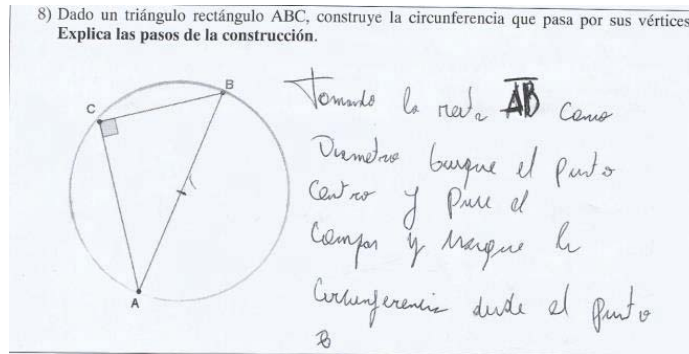 8) Dado un triángulo rectángulo ABC, construye la circunferencia que pasa por sus vértices
Explica las pasos de la construcción.
B
C
A
Tomando la recta AB como
Diametro busque el punto
Centro y puse el
Compas y marque la
Circunferencia desde el punto
B